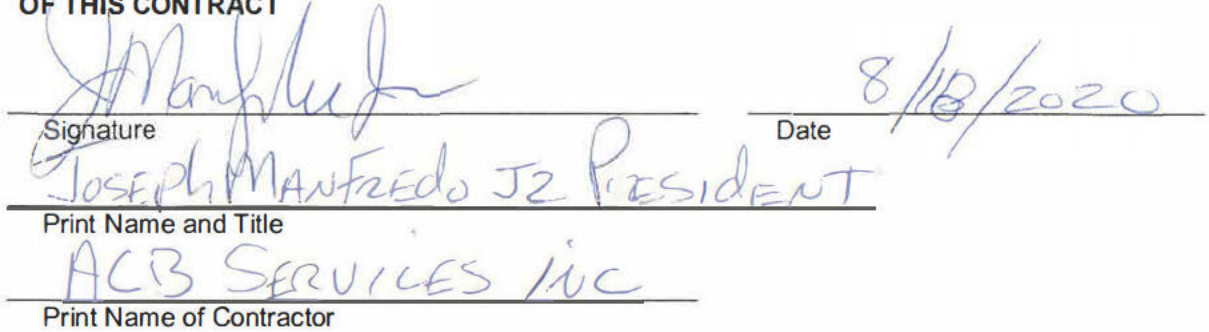 OF THIS CONTRACT
8/18/2020
Signature Date
JOSEPh MANFREdo JR PRESIdENT
Print Name and Title
ACB SERVICES INC
Print Name of Contractor